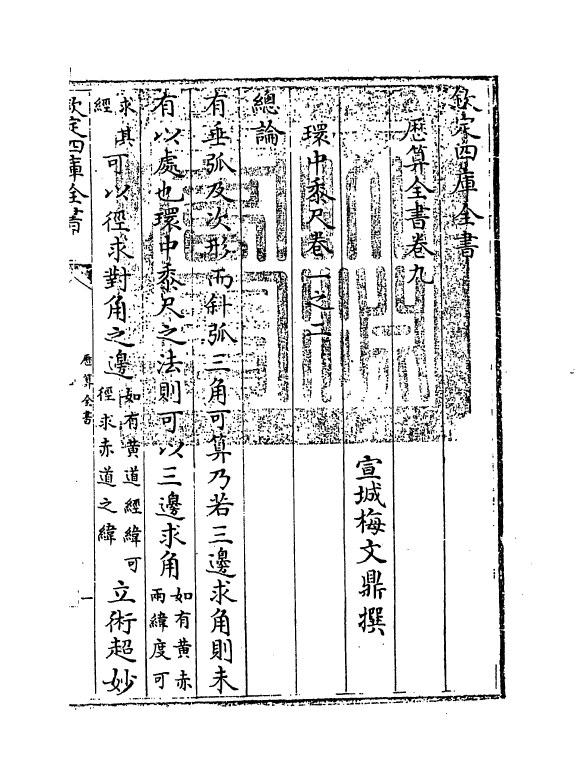 欽定四庫全書
厯算全書卷九
宣城梅文鼎撰
環中黍尺卷一之二
總論
有垂弧及次形而斜弧三角可算乃若三邊求角則未
有以處也環中黍尺之法則可以三邊求角如有黄赤兩緯度可
求其經可以徑求對角之邊如有黄道經緯可徑求赤道之緯立術超妙
欽定四庫全書
厯算全書
一